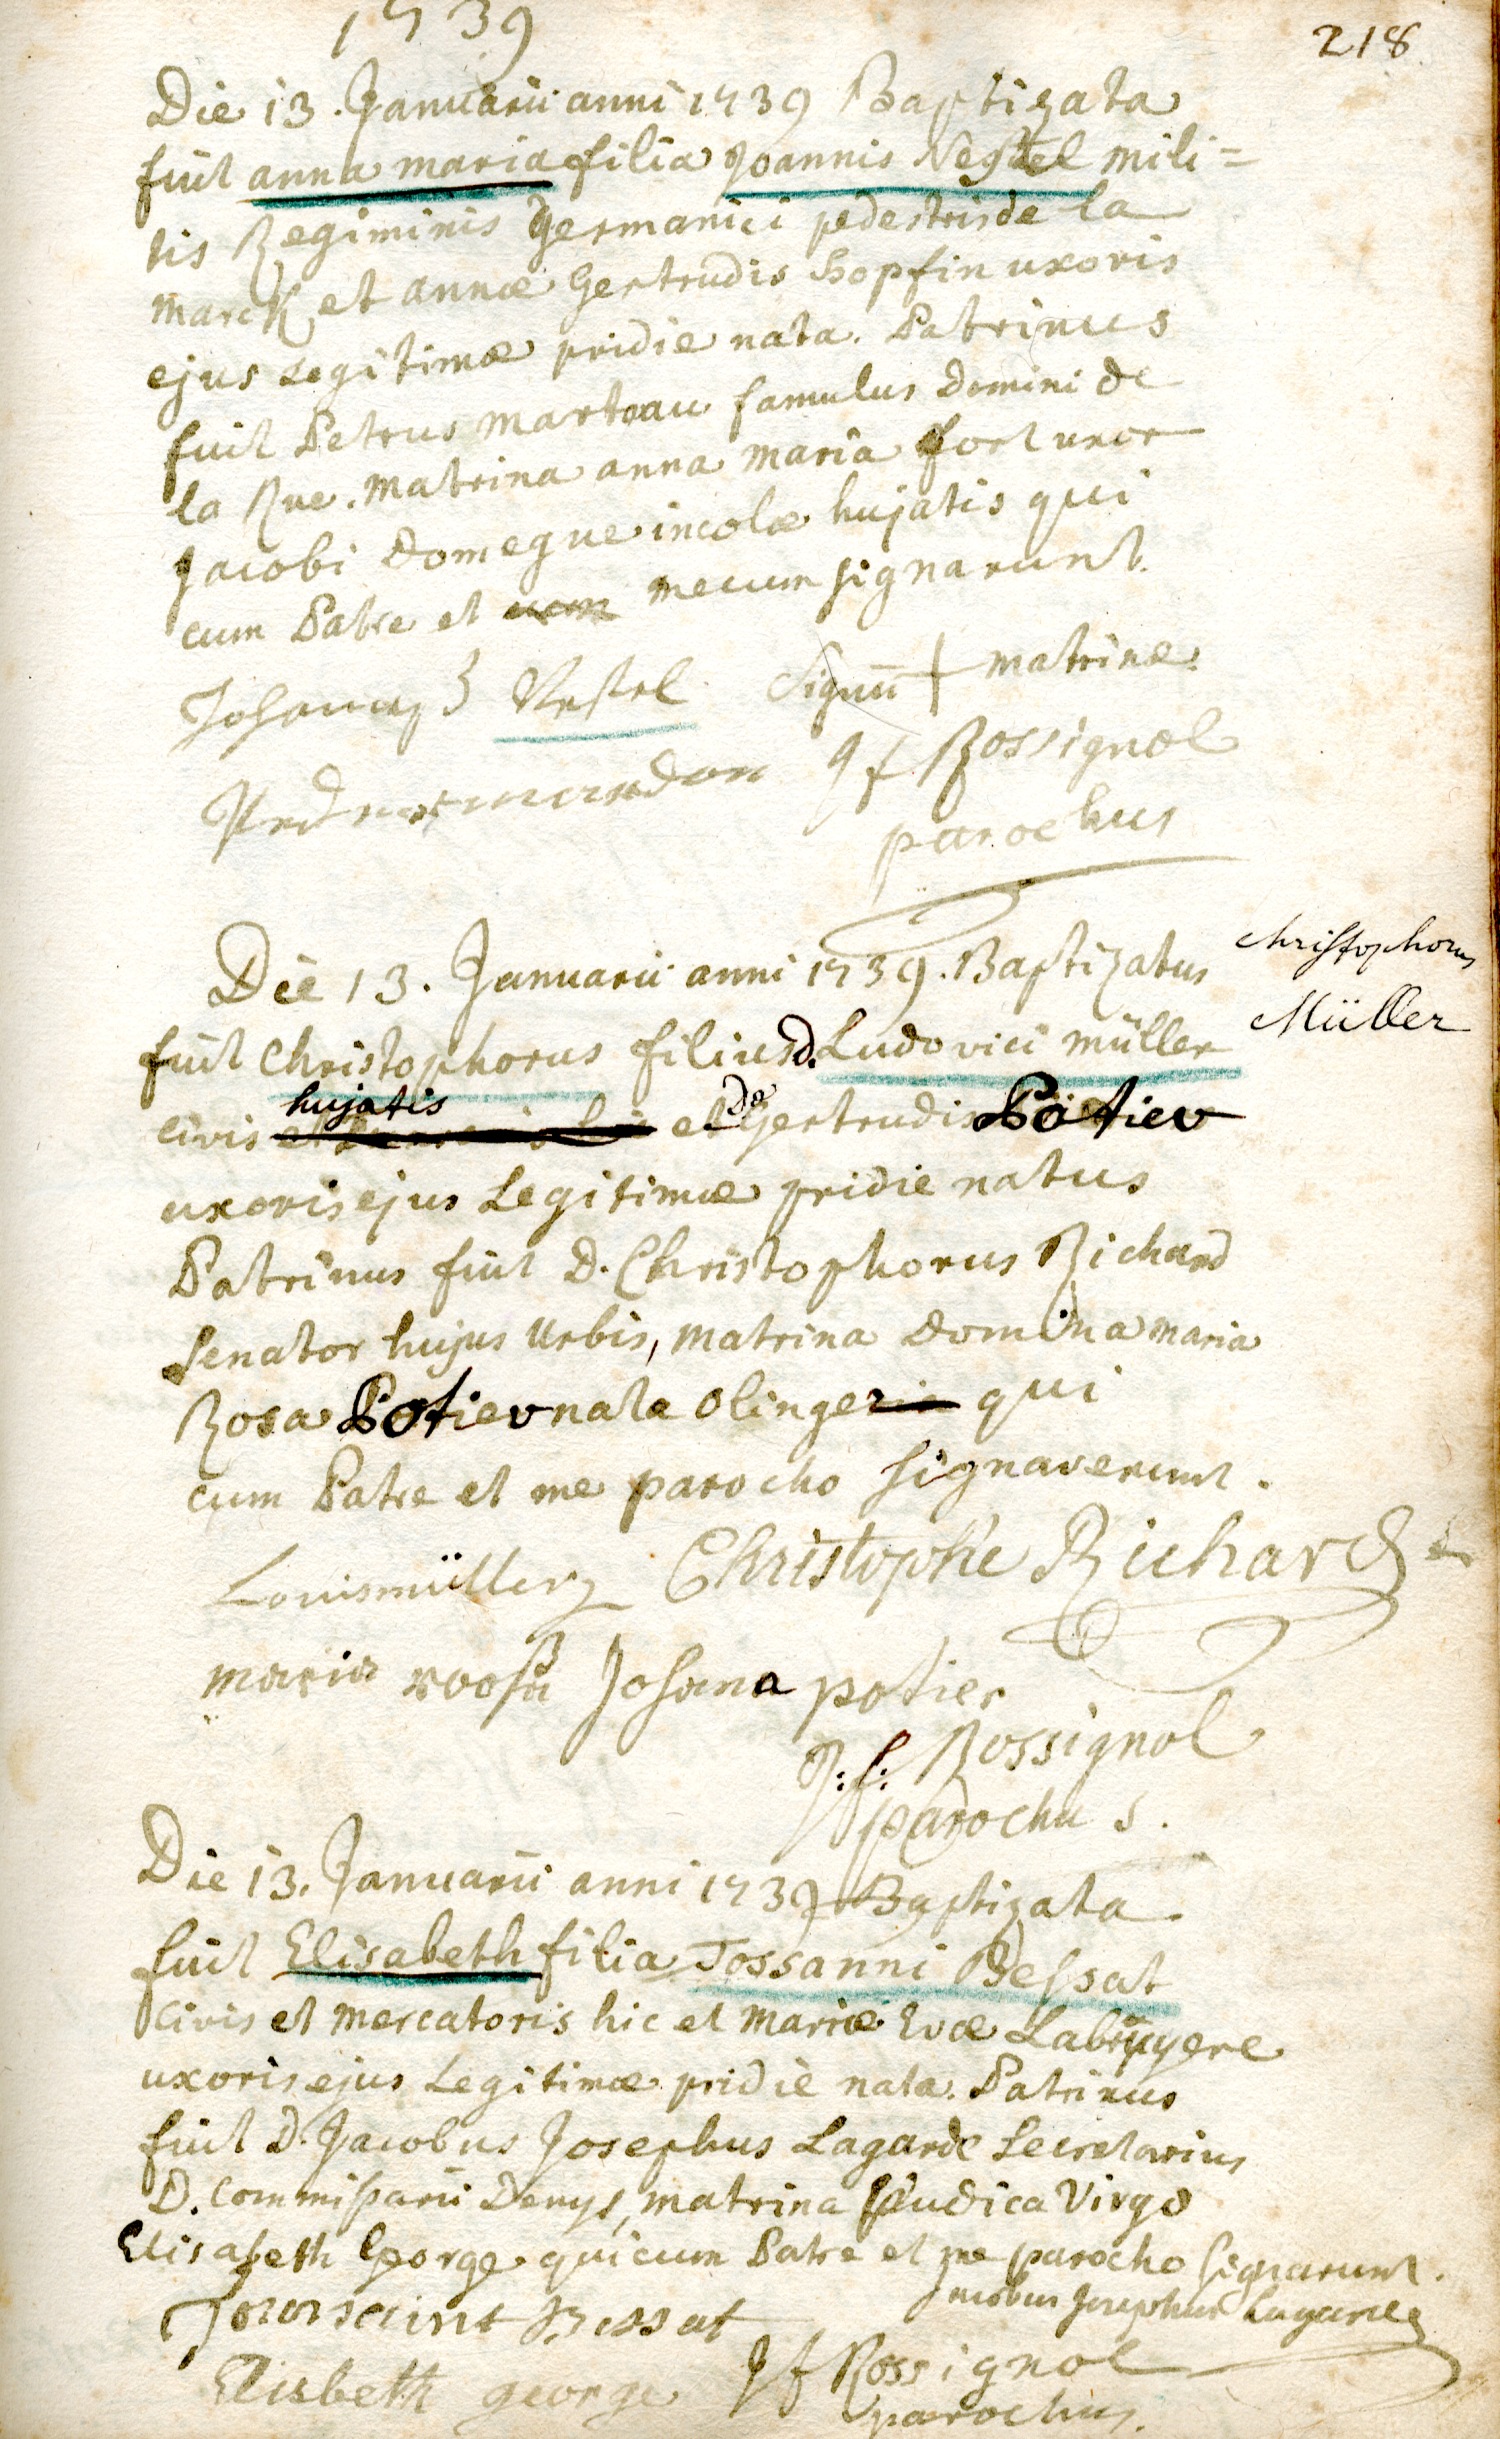 1739
218
Die 13. Januarii anni 1739 Baptizata
fuit anna maria filia Joannis Nestel mili=
tis Regiminis Germanici pedestris de la
marck et annæ Gertrudis hopfin uxoris
ejus Legitimæ pridie nata. Patrinus
fuit Petrus marteau famulus Domini de
la Rue. matrina anna maria fort uxor
Jacobi Domegue incolæ hujatis qui
cum Patre et mecum signarunt.
Johannes Nestel Signū + matrinæ
J f Rossignol
parochus
Die 13. Januarii anni 1739. Baptizatus
Christophorus
Müller
fuit Christophorus filius d. Ludovici müller
civis hujatis et Dæ Gertrudis Potier
uxoris ejus Legitimæ pridie natus
Patrinus fuit D. Christophorus Richard
Senator hujus Urbis, matrina Domina maria
Rosa Potier nata Olinger qui
cum Patre et me parocho signaverunt.
Louis müller Christophe Richard
maria roosa Johana potier
J: f: Rossignol
parochus.
Die 13. Januarii anni 1739 Baptizata
fuit Elisabeth filia Tossanni Bessat
civis et mercatoris hic et mariæ Evæ Labruyere
uxoris ejus Legitimæ pridie nata. Patrinus
fuit D. Jacobus Josephus Lagarde Secretarius
D. Commissarii Denys, matrina Pudica Virgo
Elisabeth George qui cum Patre et me parocho signarunt.
Jacobus Josephus Lagarde
Bessat
Elisbeth george J f Rossignol
parochus.